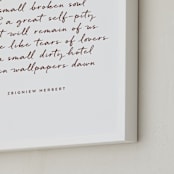 small broken soul
a great self-pity
will remain of us
like tears of lovers
small dirty hotel
wallpapers dawn
ZBIGNIEW HERBERT